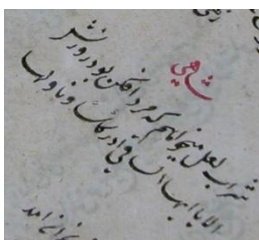 شاهی
شراب لعل میخواهم که مرد افکن بود زورش
الا یا ایها الساقی ادر کأسا و ناولها